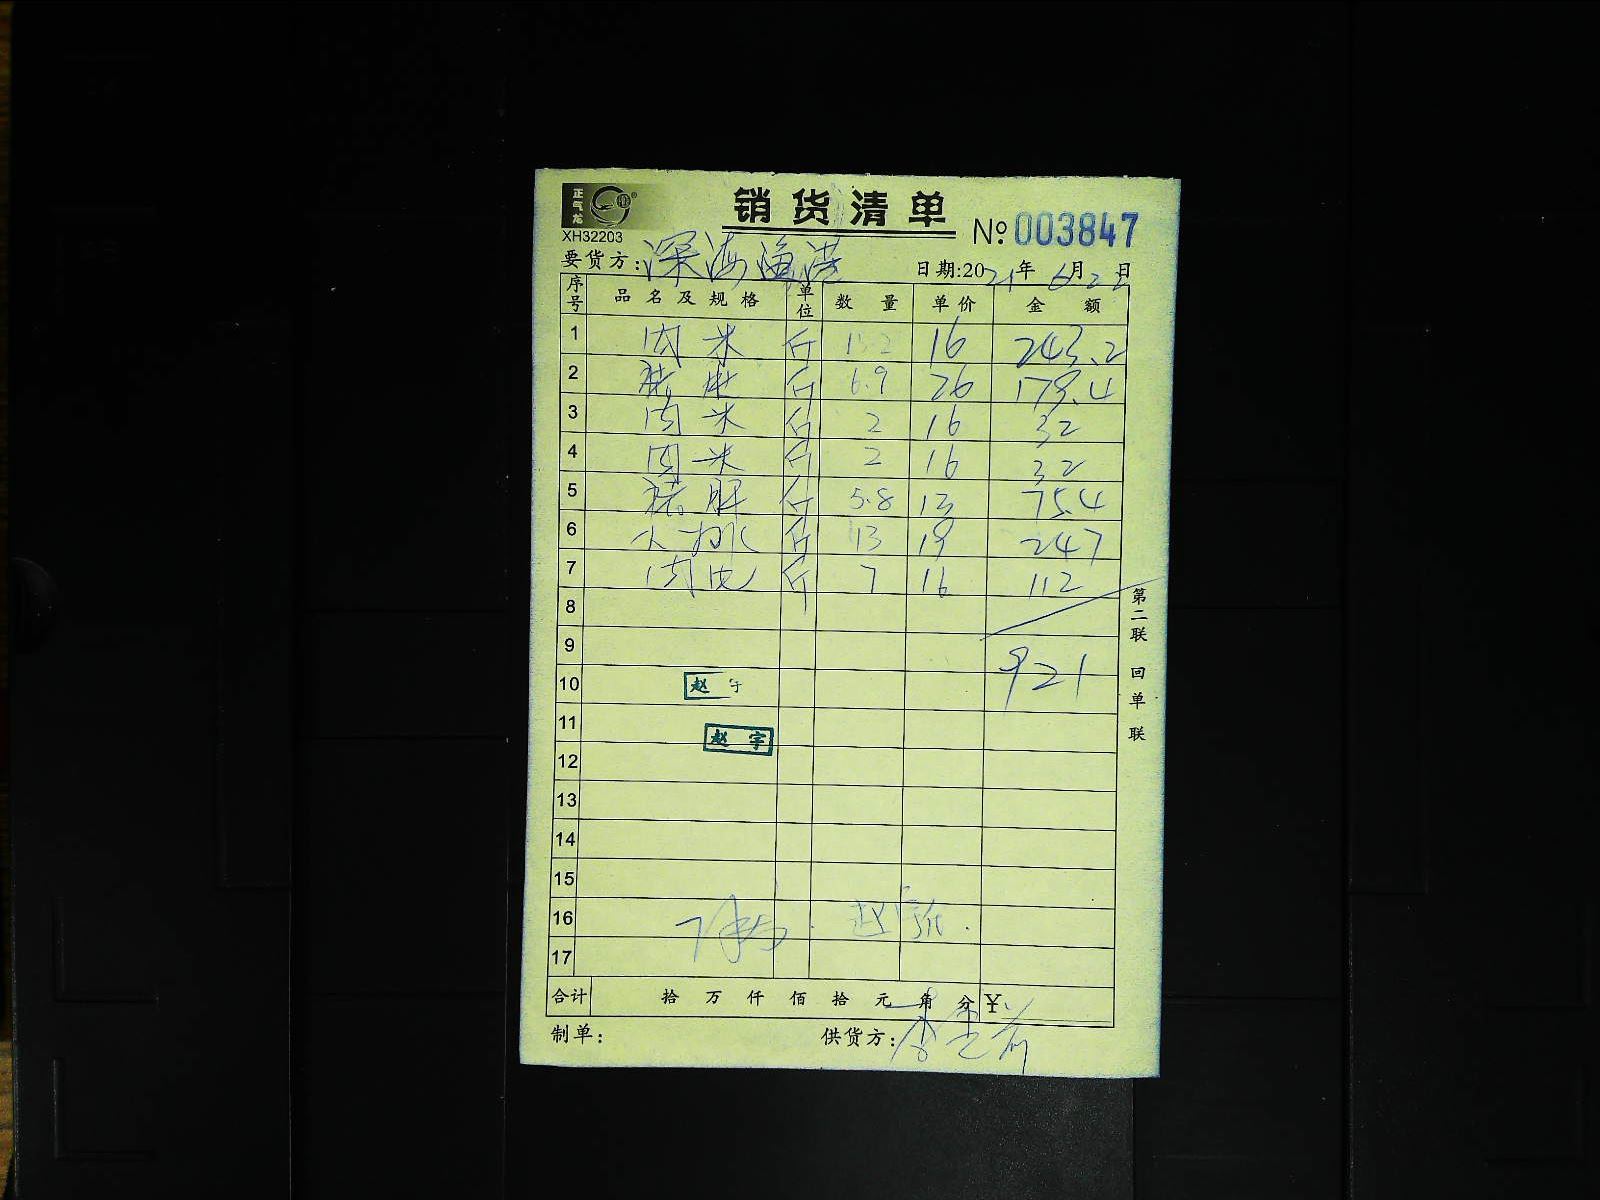 正气龙
销货清单
XH32203
№003847
要货方：深海渔港 日期:2021年6月22日
序号 品名及规格 单位 数量 单价 金额
1 肉米 斤 15.2 16 243.2
2 猪肚 斤 6.9 26 179.4
3 肉米 斤 2 16 32
4 肉米 斤 2 16 32
5 猪肝 斤 5.8 13 75.4
6 大排 斤 13 19 247
7 肉 斤 7 16 112
8
9 921
10 赵宇
11 赵宇
12
13
14
15
16 赵
17
合计 拾 万 仟 佰 拾 元 角 分 ¥
制单： 供货方：李
第二联 回单联